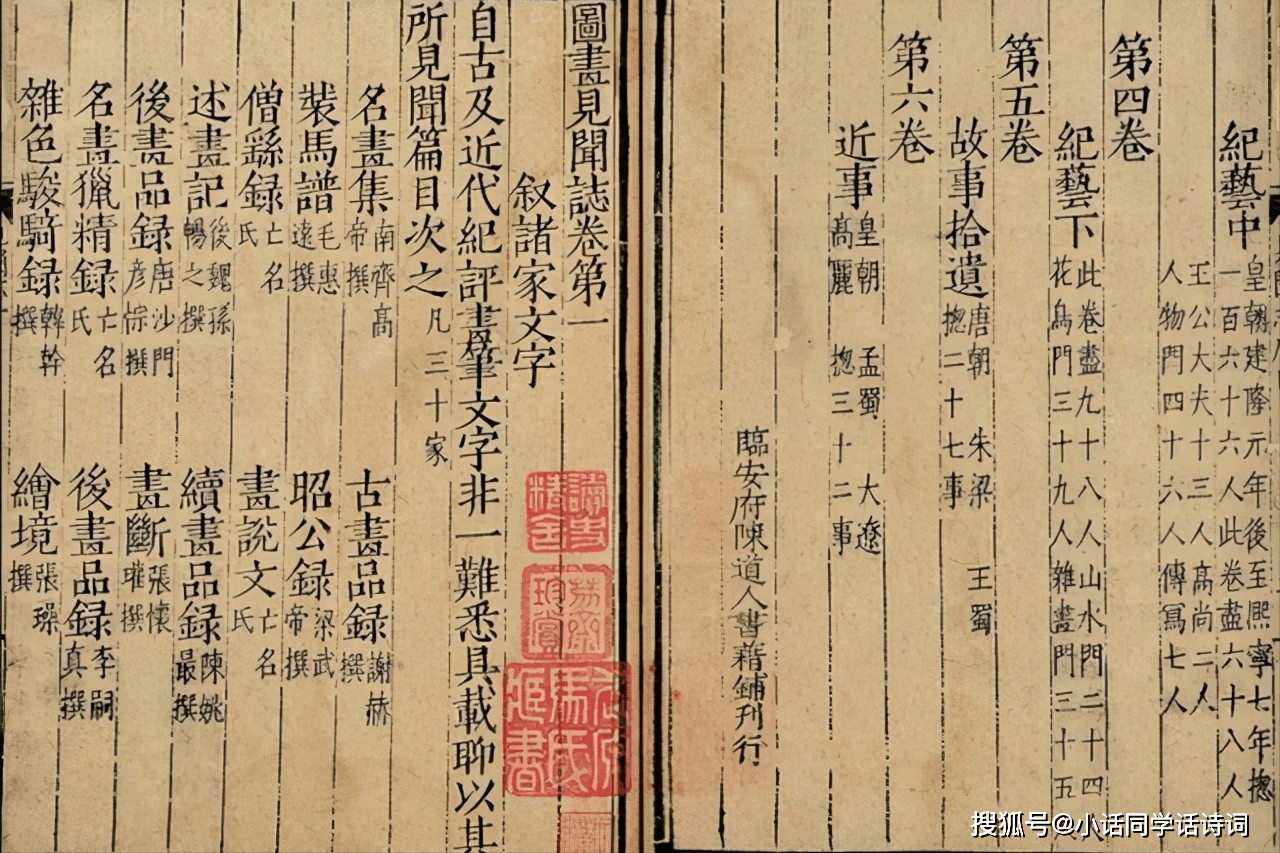 紀藝中 皇朝建隆元年後至熙寧七年揔
一百六十六人此卷盡六十八人
王公大夫十三人高尚二人
人物門四十六人傳寫七人
第四卷
紀藝下 此卷盡九十八人山水門二十四人
花鳥門三十九人雜畫門三十五
第五卷
故事拾遺 唐朝 朱梁 王蜀
揔二十七事
第六卷
近事 皇朝 孟蜀 大遼
高麗 揔三十二事
臨安府陳道人書籍鋪刊行
圖畫見聞誌卷第一
叙諸家文字
自古及近代紀評畫筆文字非一難悉具載聊以其
所見聞篇目次之 凡三十家
名畫集 南齊高帝撰 古畫品録 謝赫撰
裝馬譜 毛惠遠撰 昭公録 梁武帝撰
僧繇録 亡名氏 畫說文 亡名氏
述畫記 後魏孫暢之撰 續畫品録 陳姚最撰
後畫品録 唐沙門彦悰撰 畫斷 張懷瓘撰
名畫獵精録 亡名氏 後畫品録 李嗣真撰
雜色駿騎録 韓幹撰 繪境 張璪撰
搜狐号@小话同学话诗词